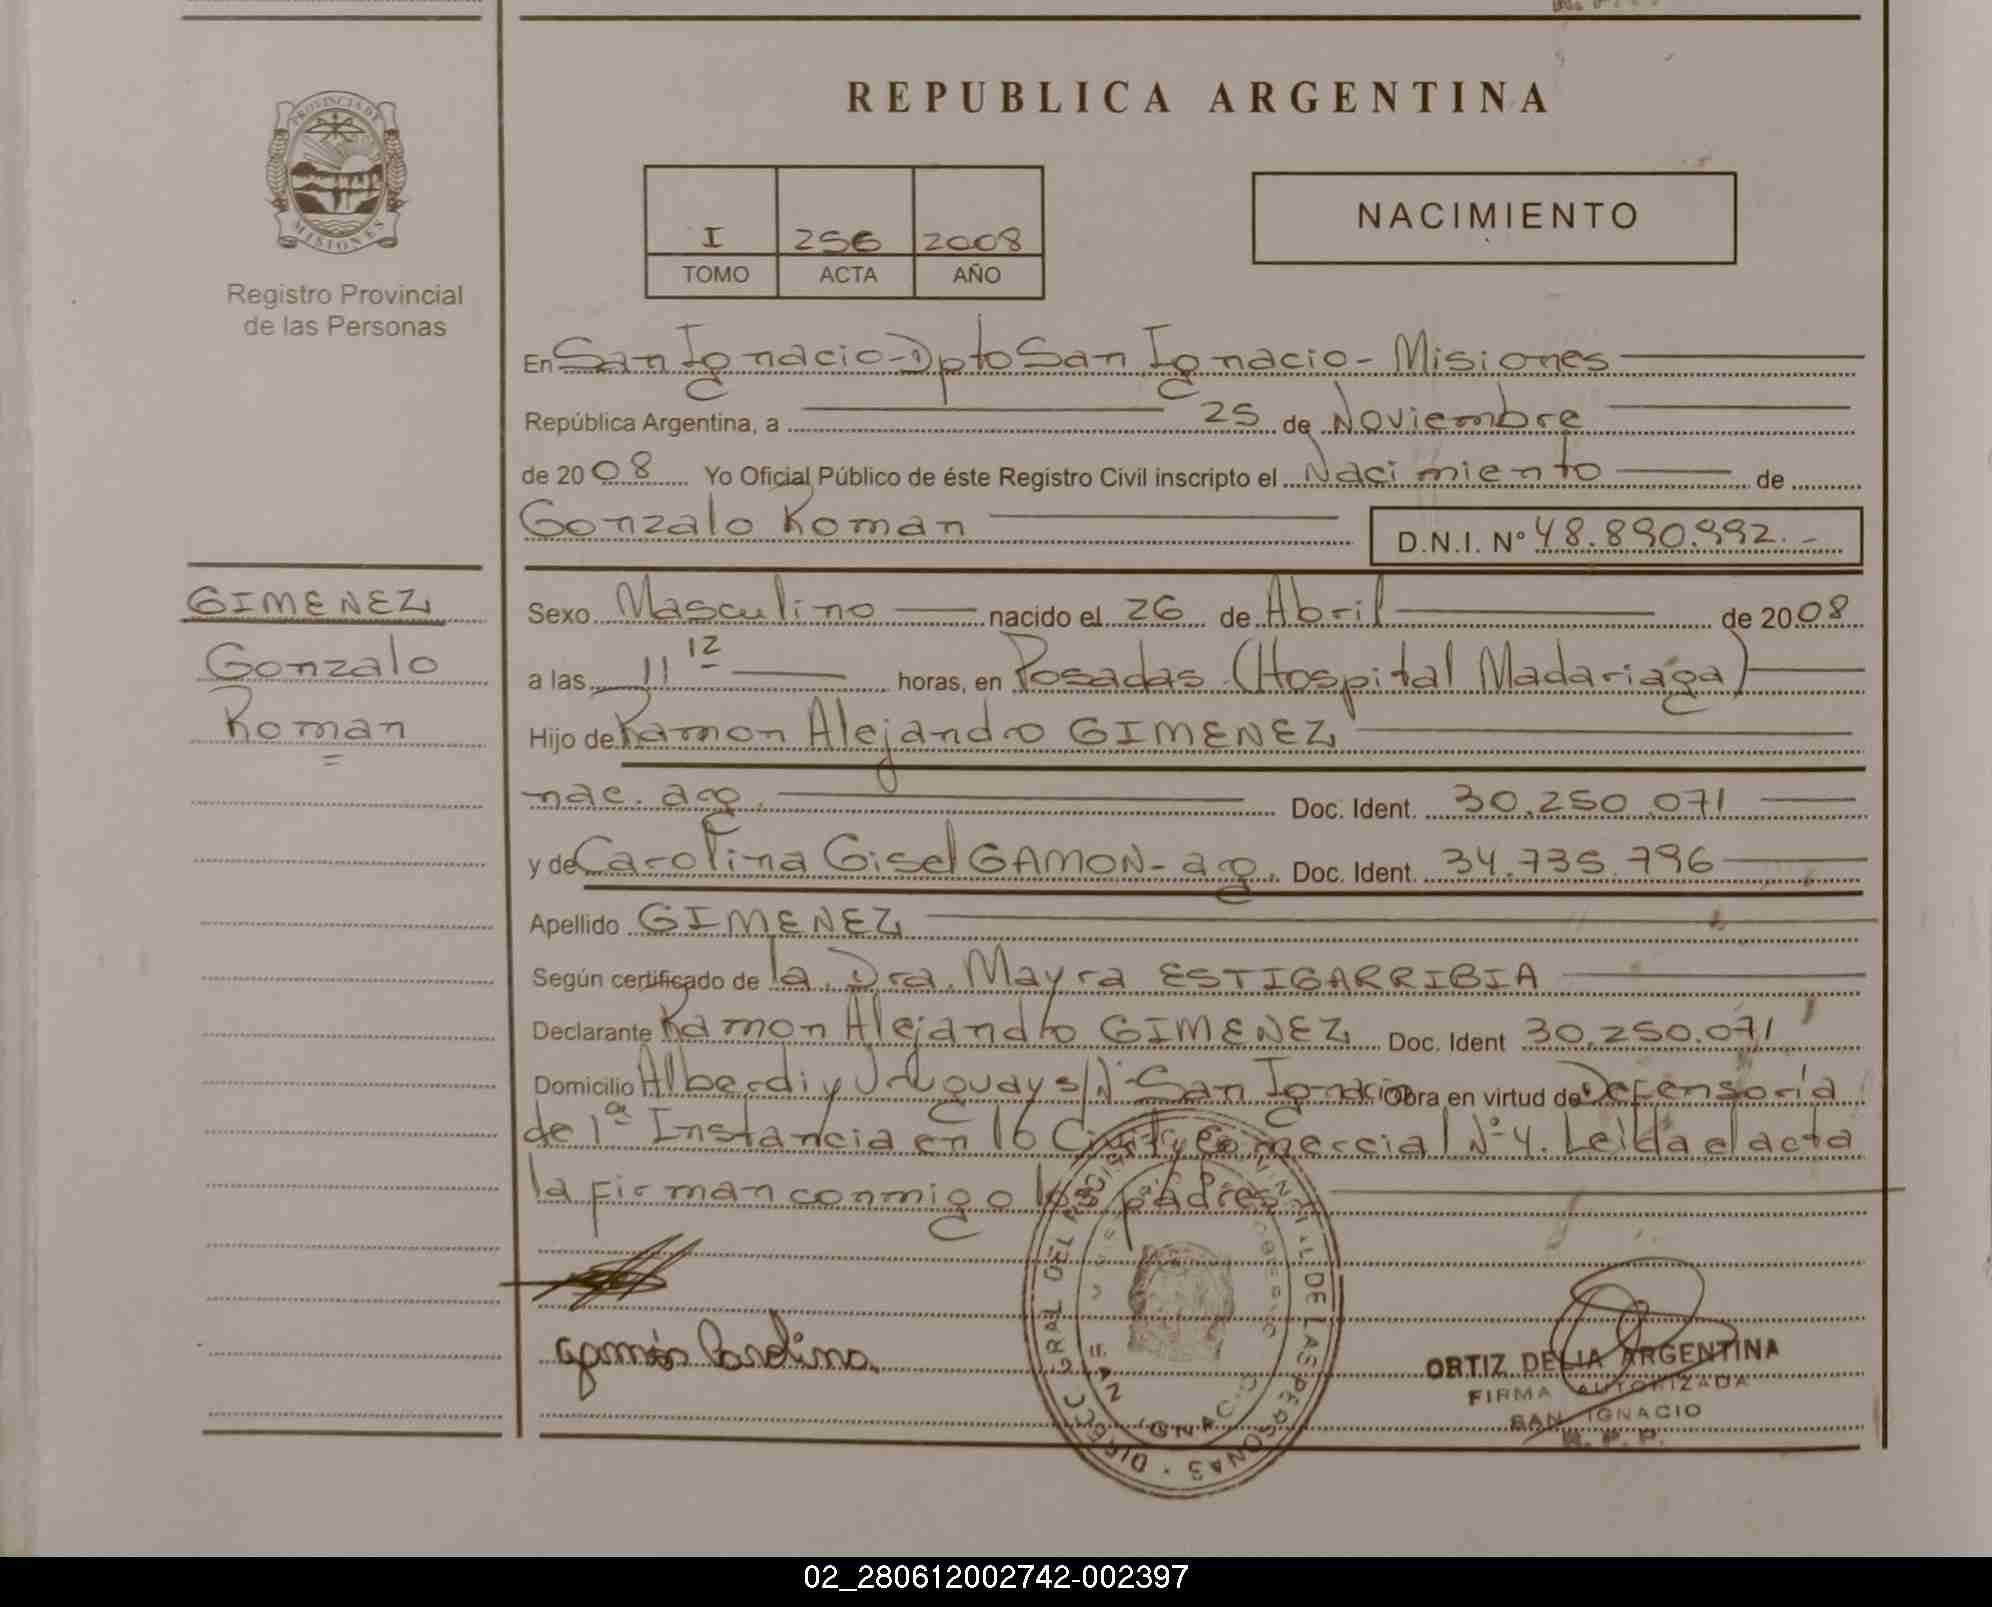 PROVINCIA DE
MISIONES
Registro Provincial
de las Personas
GIMENEZ
Gonzalo
Roman
REPUBLICA ARGENTINA
I 256 2008
TOMO ACTA AÑO
NACIMIENTO
En San Ignacio - Dpto San Ignacio - Misiones
República Argentina, a 25 de Noviembre
de 2008 Yo Oficial Público de éste Registro Civil inscripto el Nacimiento de
Gonzalo Roman D.N.I. N° 48.890.992.-
Sexo Masculino nacido el 26 de Abril de 2008
a las 11 12 horas, en Posadas (Hospital Madariaga)
Hijo de Ramon Alejandro GIMENEZ
nac. arg. Doc. Ident. 30.250.071
y de Carolina Gisel GAMON - arg. Doc. Ident. 34.735.796
Apellido GIMENEZ
Según certificado de la Dra. Mayra ESTIGARRIBIA
Declarante Ramon Alejandro GIMENEZ Doc. Ident 30.250.071
Domicilio Alberdi y Uruguay s/N°- San Ignacio Obra en virtud de Defensoría
de 1ª Instancia en 16 Civil y Comercial N° 4. Leida el acta
la firman conmigo los padres
Gamón Carolina
DE LAS PERSONAS
ORTIZ DELIA ARGENTINA
FIRMA AUTORIZADA
SAN IGNACIO
R. P. P.
02_280612002742-002397